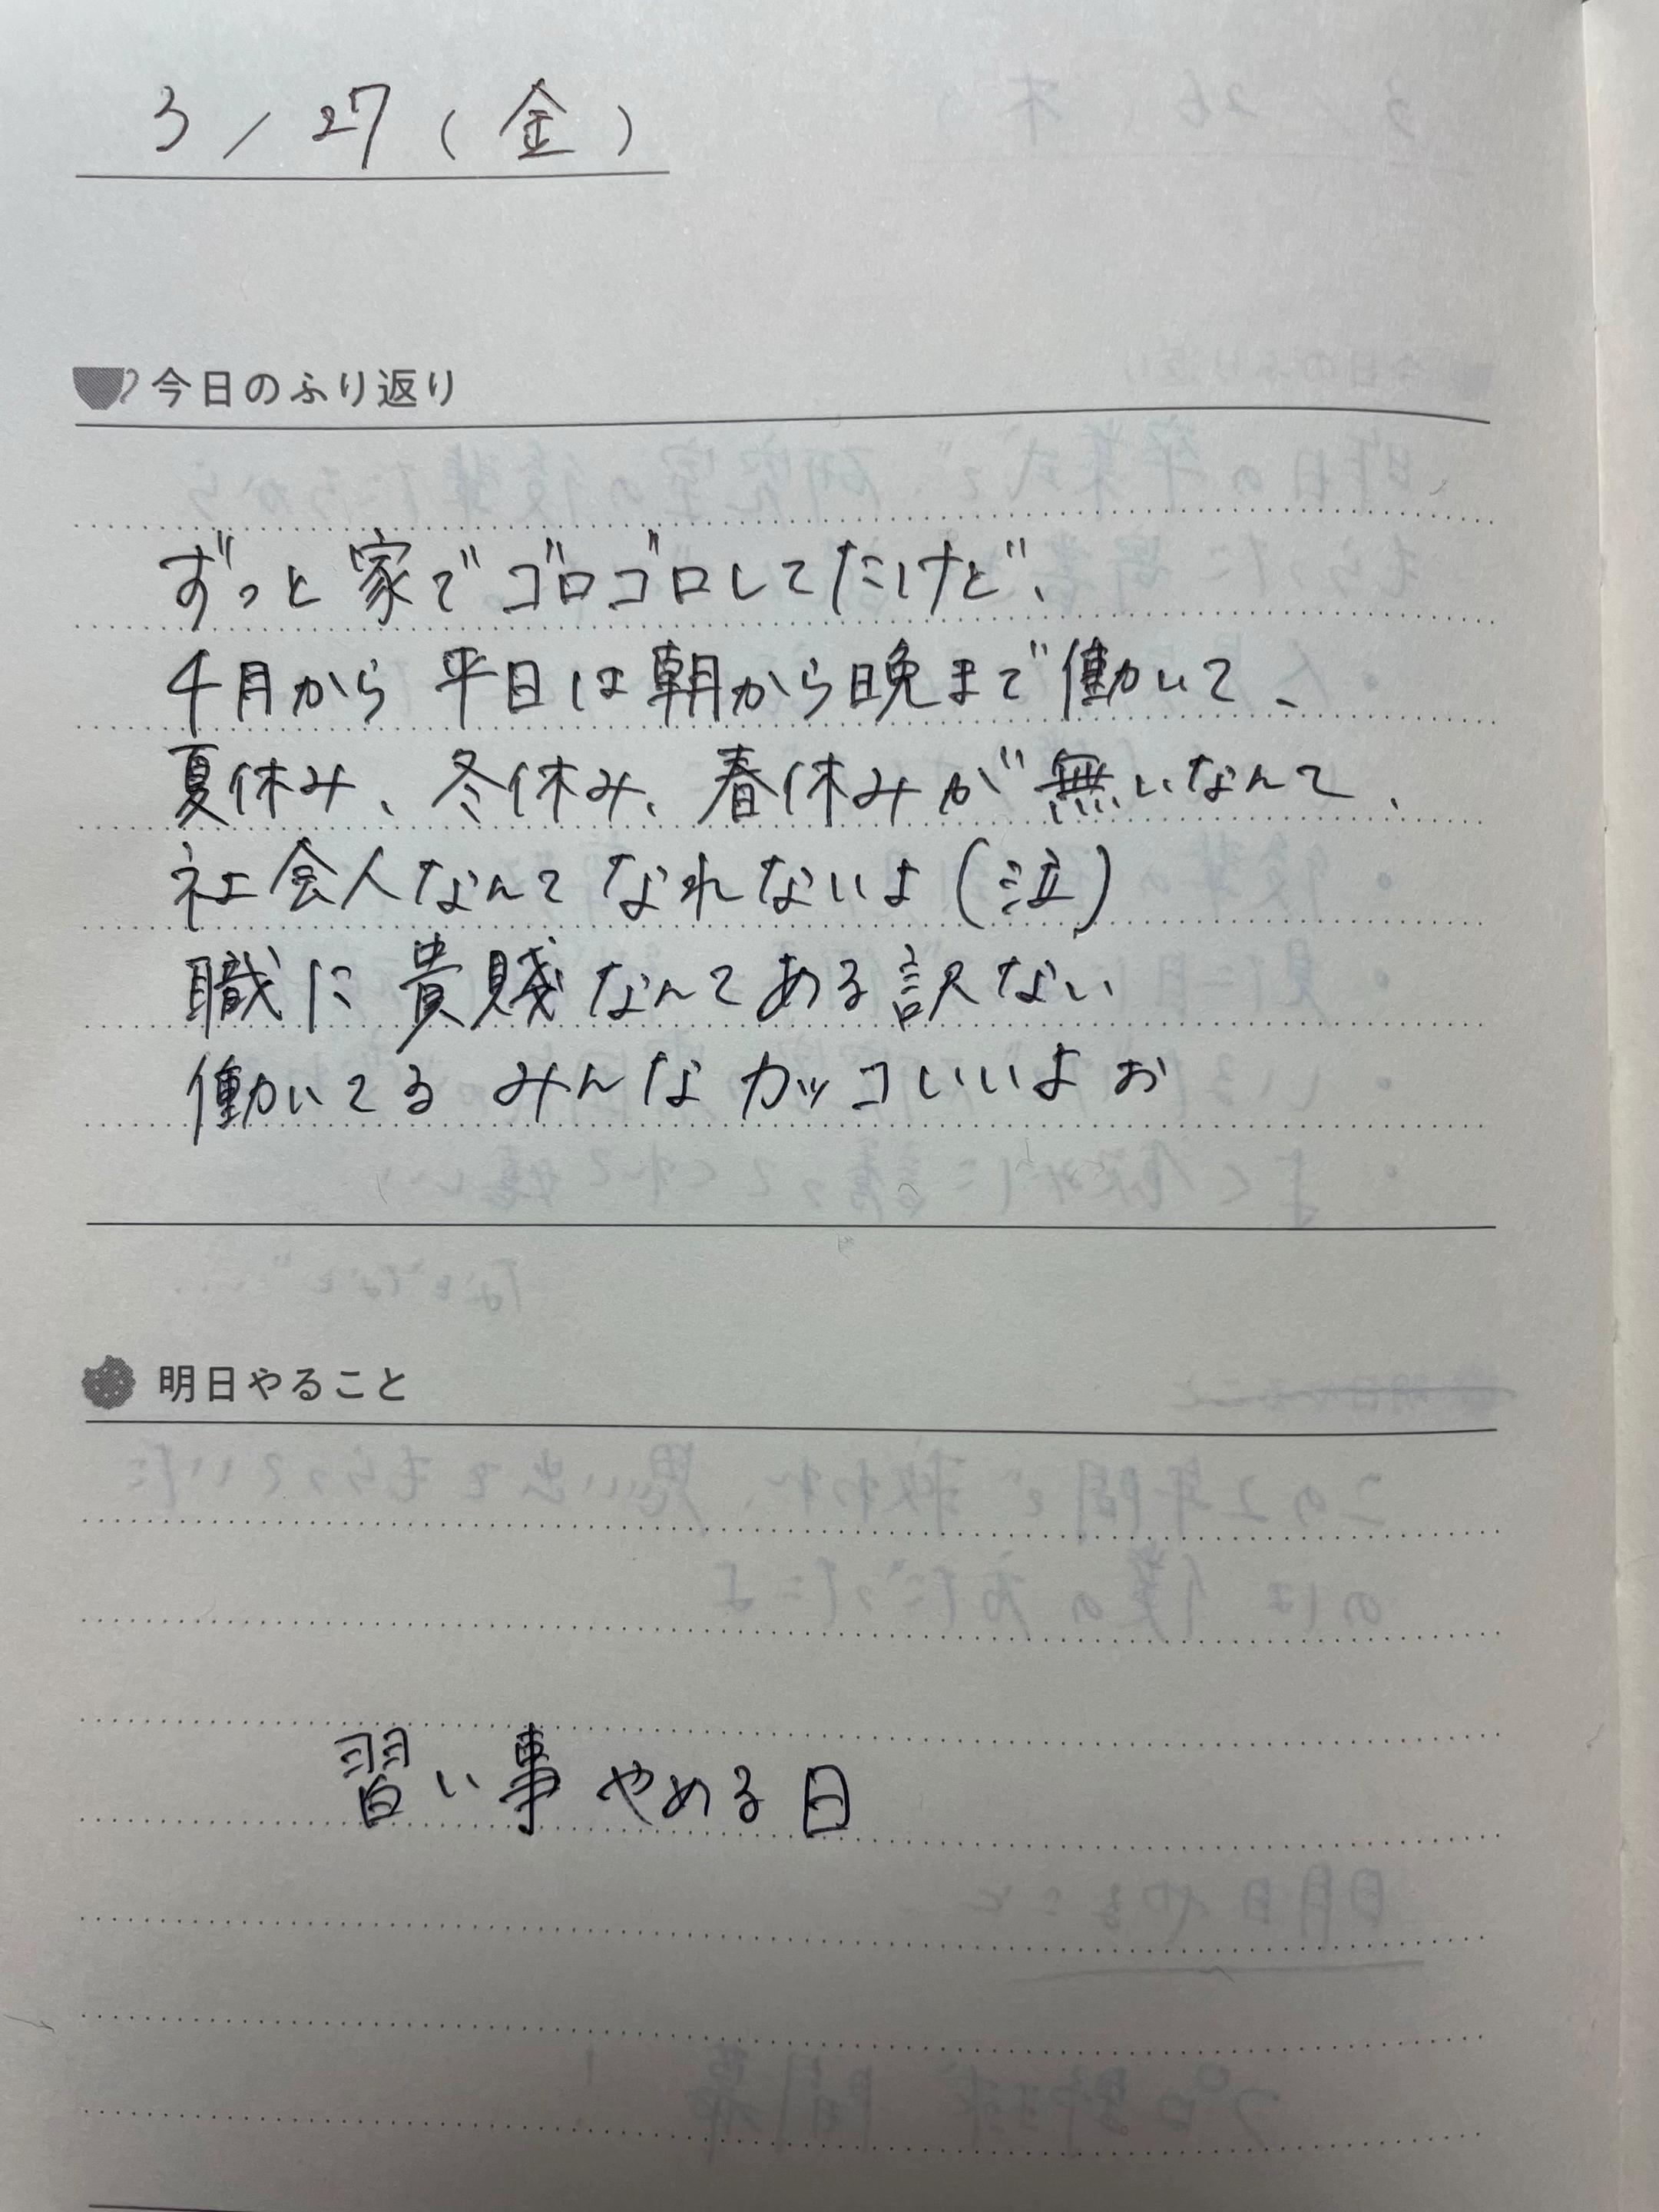 3/27(金)
今日のふり返り
ずっと家でゴロゴロしてたけど、
4月から平日は朝から晩まで働いて、
夏休み、冬休み、春休みが無いなんて、
社会人なんてなれないよ(泣)
職に貴賤なんてある訳ない
働いてるみんなカッコいいよぉ
明日やること
習い事やめる日